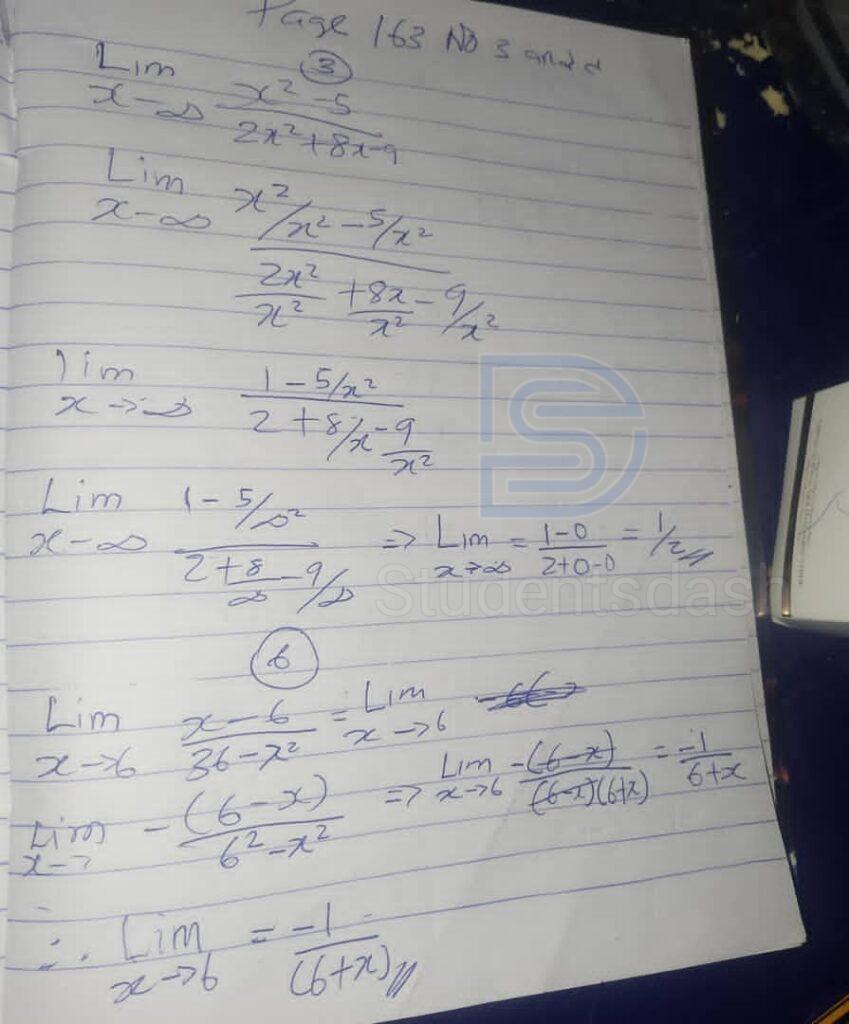 Page 163 No 3 and
③
Lim x-∞ x² -5 / 2x²+8x-9
Lim x-∞ x²/x² - 5/x² / 2x²/x² + 8x/x² - 9/x²
lim x→∞ 1 - 5/x² / 2 + 8/x - 9/x²
Lim x-∞ 1 - 5/∞² / 2 + 8/∞ - 9/∞ => Lim x→∞ = 1-0 / 2+0-0 = 1/2
⑥
Lim x→6 x-6 / 36-x² = Lim x→6
Lim x→ -(6-x) / 6²-x² => Lim x→6 -(6-x) / (6-x)(6+x) = -1 / 6+x
∴ Lim x→6 = -1 / (6+x)
Studentsdash